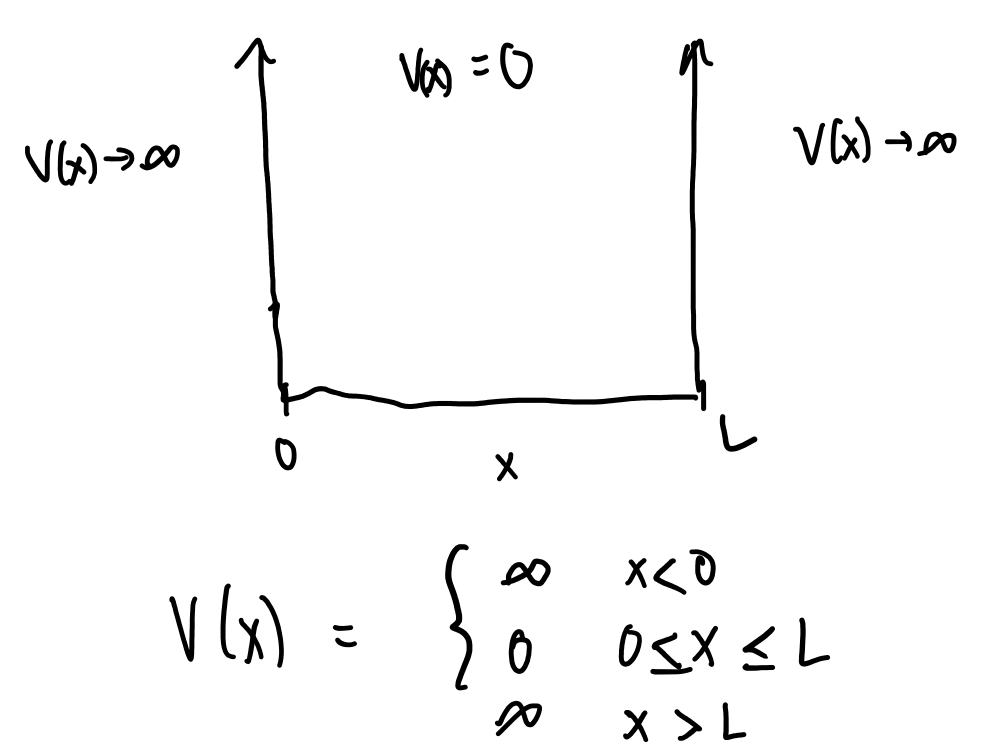 V(x) = 0
V(x) → ∞
V(x) → ∞
0
x
L
V(x) = { ∞ x < 0
0 0 ≤ x ≤ L
∞ x > L